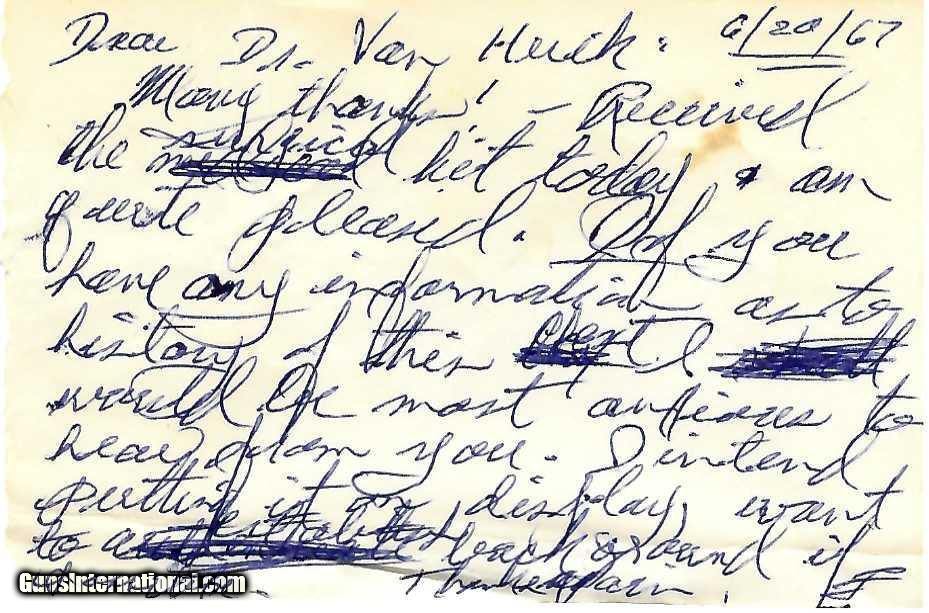 Dear Dr. Van Huck. 6/20/67
Many thanks! - Received
the surgical kit today & am
quite pleased. If you
have any information as to
history of this chest I
would be most anxious to
hear from you. I intend
putting it on display, want
to establish background if
Thanks again.
GunsInternational.com